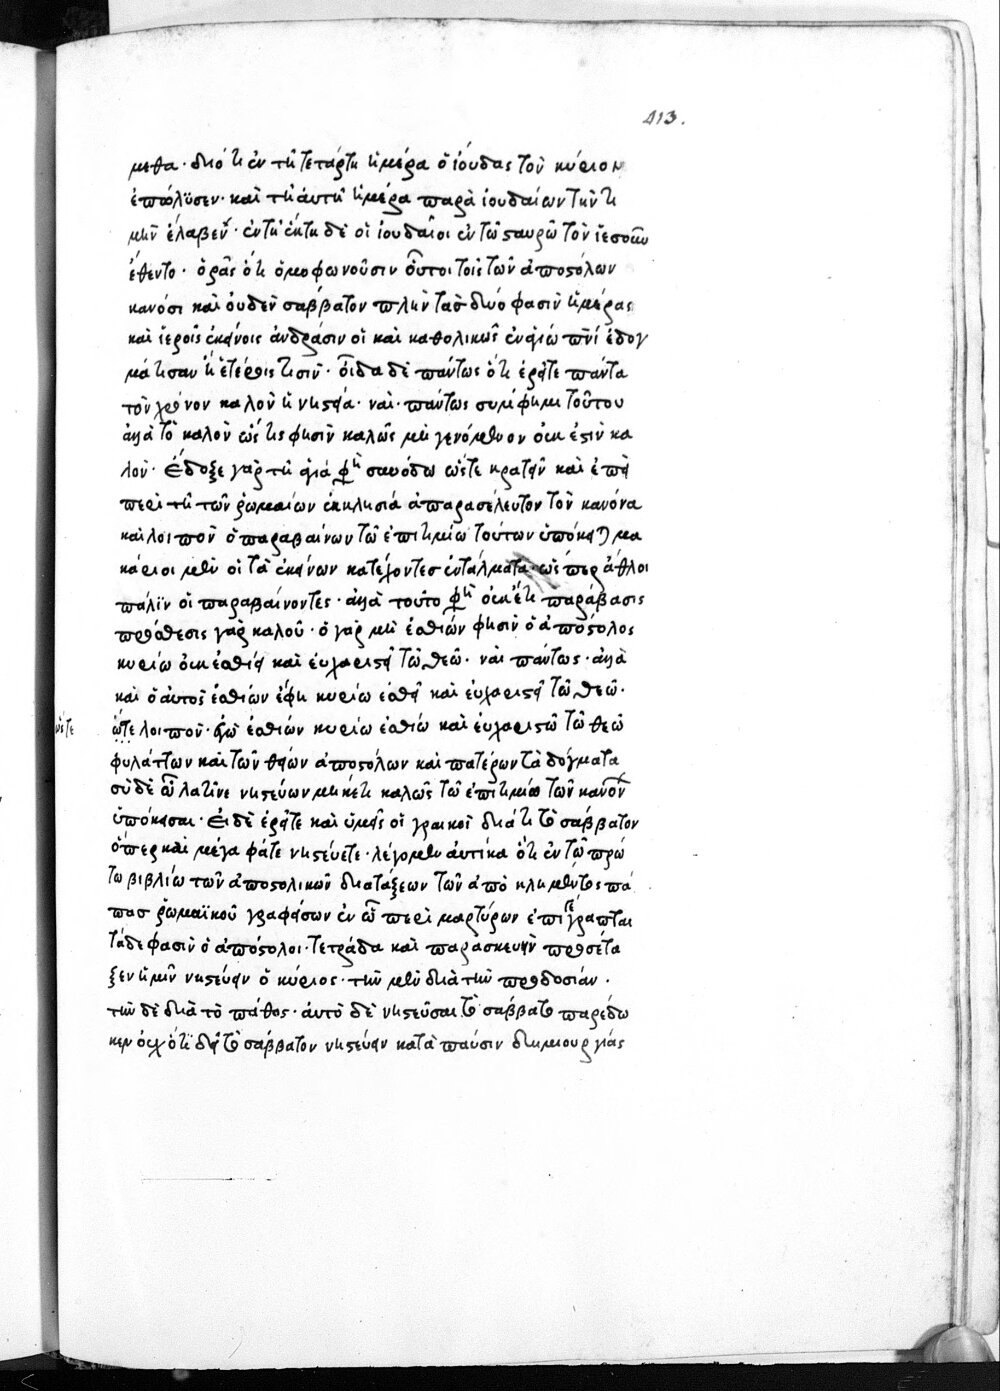 413.
μεθα· διότι ἐν τῆ τετάρτη ἡμέρα ὁ ἰούδας τὸν κύριον
ἐπώλϋσεν· καὶ τῆ ἀυτῆ ἡμέρα παρὰ ἰουδαίων τὴν τι
μὴν ἔλαβεν· ἐν τῆ ἕκτη δὲ οἱ ἰουδαῖοι ἐν τῶ σαυρῶ τὸν
ἔθεντο· ὁρᾶς ὅτι ὁμοφωνοῦσιν οὗτοι τοῖς τῶν ἀποστόλων
κανόσι καὶ ὀυδὲν σάββατον πλὴν τὰσ δύο φασὶν ἡμέρας
καὶ ἱεροῖς ἐκείνοις ἀνδράσιν οἳ καὶ καθολικῶς ἐν ἁγίω πνί ἐδογ
μάτισαν ἢ ἑτέροις τισὶν· οἶδα δὲ πάντως ὅτι ἐρεῖτε πάντα
τὸν χρόνον καλὸν ἡ νηστεία· ναὶ· πάντως συμφημι τοῦτου
ἀλλὰ τὸ καλὸν ὥς τις φησὶν καλῶς μὴ γενόμενον οὐκ ἐστὶν κα
λὸν· ἔδοξε γὰρ τῆ ἁγία συνόδω ὥστε κρατεῖν καὶ ἐπὶ
περὶ τῆ τῶν ῥωμαίων ἐκκλησιά ἀπαρασάλευτον τὸν κανόνα
καὶ λοιπὸν ὁ παραβαίνων τῶ ἐπιτιμίω τούτων ὑπόκειται μα
κάριοι μὲν οἱ τὰ ἐκείνων κατέχοντεσ ἐντάλματα· ὥσπερ ἄθλιοι
πάλϊν οἱ παραβαίνοντες· ἀλλὰ τοῦτο οὐκ ἔτι παράβασις
πρόθεσις γὰρ καλοῦ· ὁ γὰρ μὴ ἐσθίων φησὶν ὁ ἀπόστολος
κυρίω οὐκ ἐσθίει καὶ ἐυχαριστεῖ τῶ θεῶ· ναὶ πάντως· ἀλλὰ
καὶ ὁ ἀυτὸς ἐσθίων ἔφη κυρίω ἐσθίει καὶ ἐυχαριστεῖ τῶ θεῶ·
ὥστε
ὥτε λοιπὸν· ἐγὼ ἐσθίων κυρίω ἐσθίω καὶ ἐυχαριστῶ τῶ θεῶ
φυλάττων καὶ τῶν θείων ἀποστόλων καὶ πατέρων τὰ δόγματα
σὺ δὲ ὦ λατῖνε νηστεύων μηκέτι καλῶς τῶ ἐπιτιμίω τῶν κανόνων
ὑπόκεισαι· εἰ δὲ ἐρεῖτε καὶ ὑμεῖς οἱ γραικοὶ διάτι τὸ σάββατον
ὅπερ καὶ μέγα φάτε νηστέυετε· λέγομεν ἀυτίκα ὅτι ἐν τῶ πρώ
τω βιβλίω τῶν ἀποστολικῶν διατάξεων τῶν ἀπὸ κλήμεντος πά
πασ ῥωμαϊκοῦ γραφεισων ἐν ὧ περὶ μαρτύρων ἐπιγέγραπται
τάδε φασὶν ὁ ἀπόστολοι· τετράδα καὶ παρασκευὴν προσέτα
ξεν ἡμῖν νηστεύειν ὁ κύριος· τὴν μὲν διὰ τὴν προδοσιάν·
τὴν δὲ διὰ τὸ πάθος· ἀυτὸ δὲ νηστεῦσαι τὸ σάββατο παρέδω
κεν οὐχ ὅτι δεῖ τὸ σάββατον νηστεύειν κατάπαυσιν δημιουργιάς